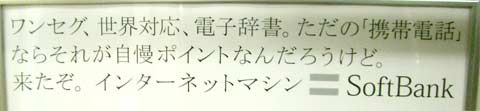 ワンセグ、世界対応、電子辞書。ただの「携帯電話」
ならそれが自慢ポイントなんだろうけど。
来たぞ。インターネットマシン SoftBank